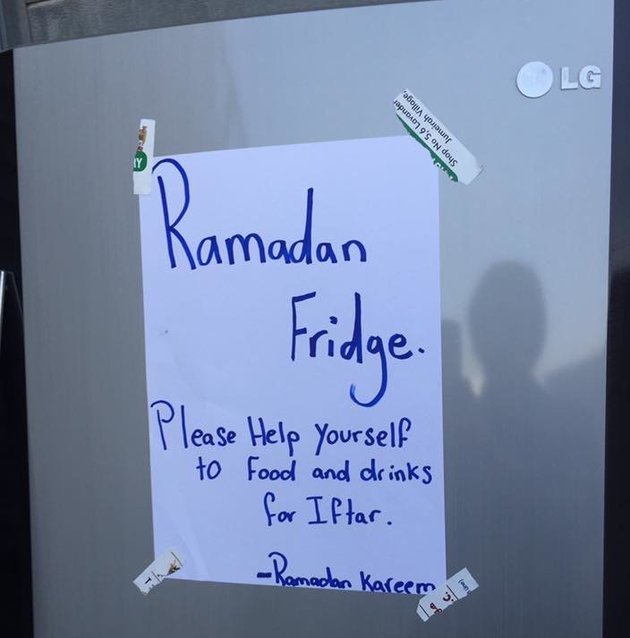 LG
Shop No 5,6 Lavander
Jumeirah Village,
Ramadan
Fridge.
Please Help yourself
to Food and drinks
for Iftar.
-Ramadan Kareem